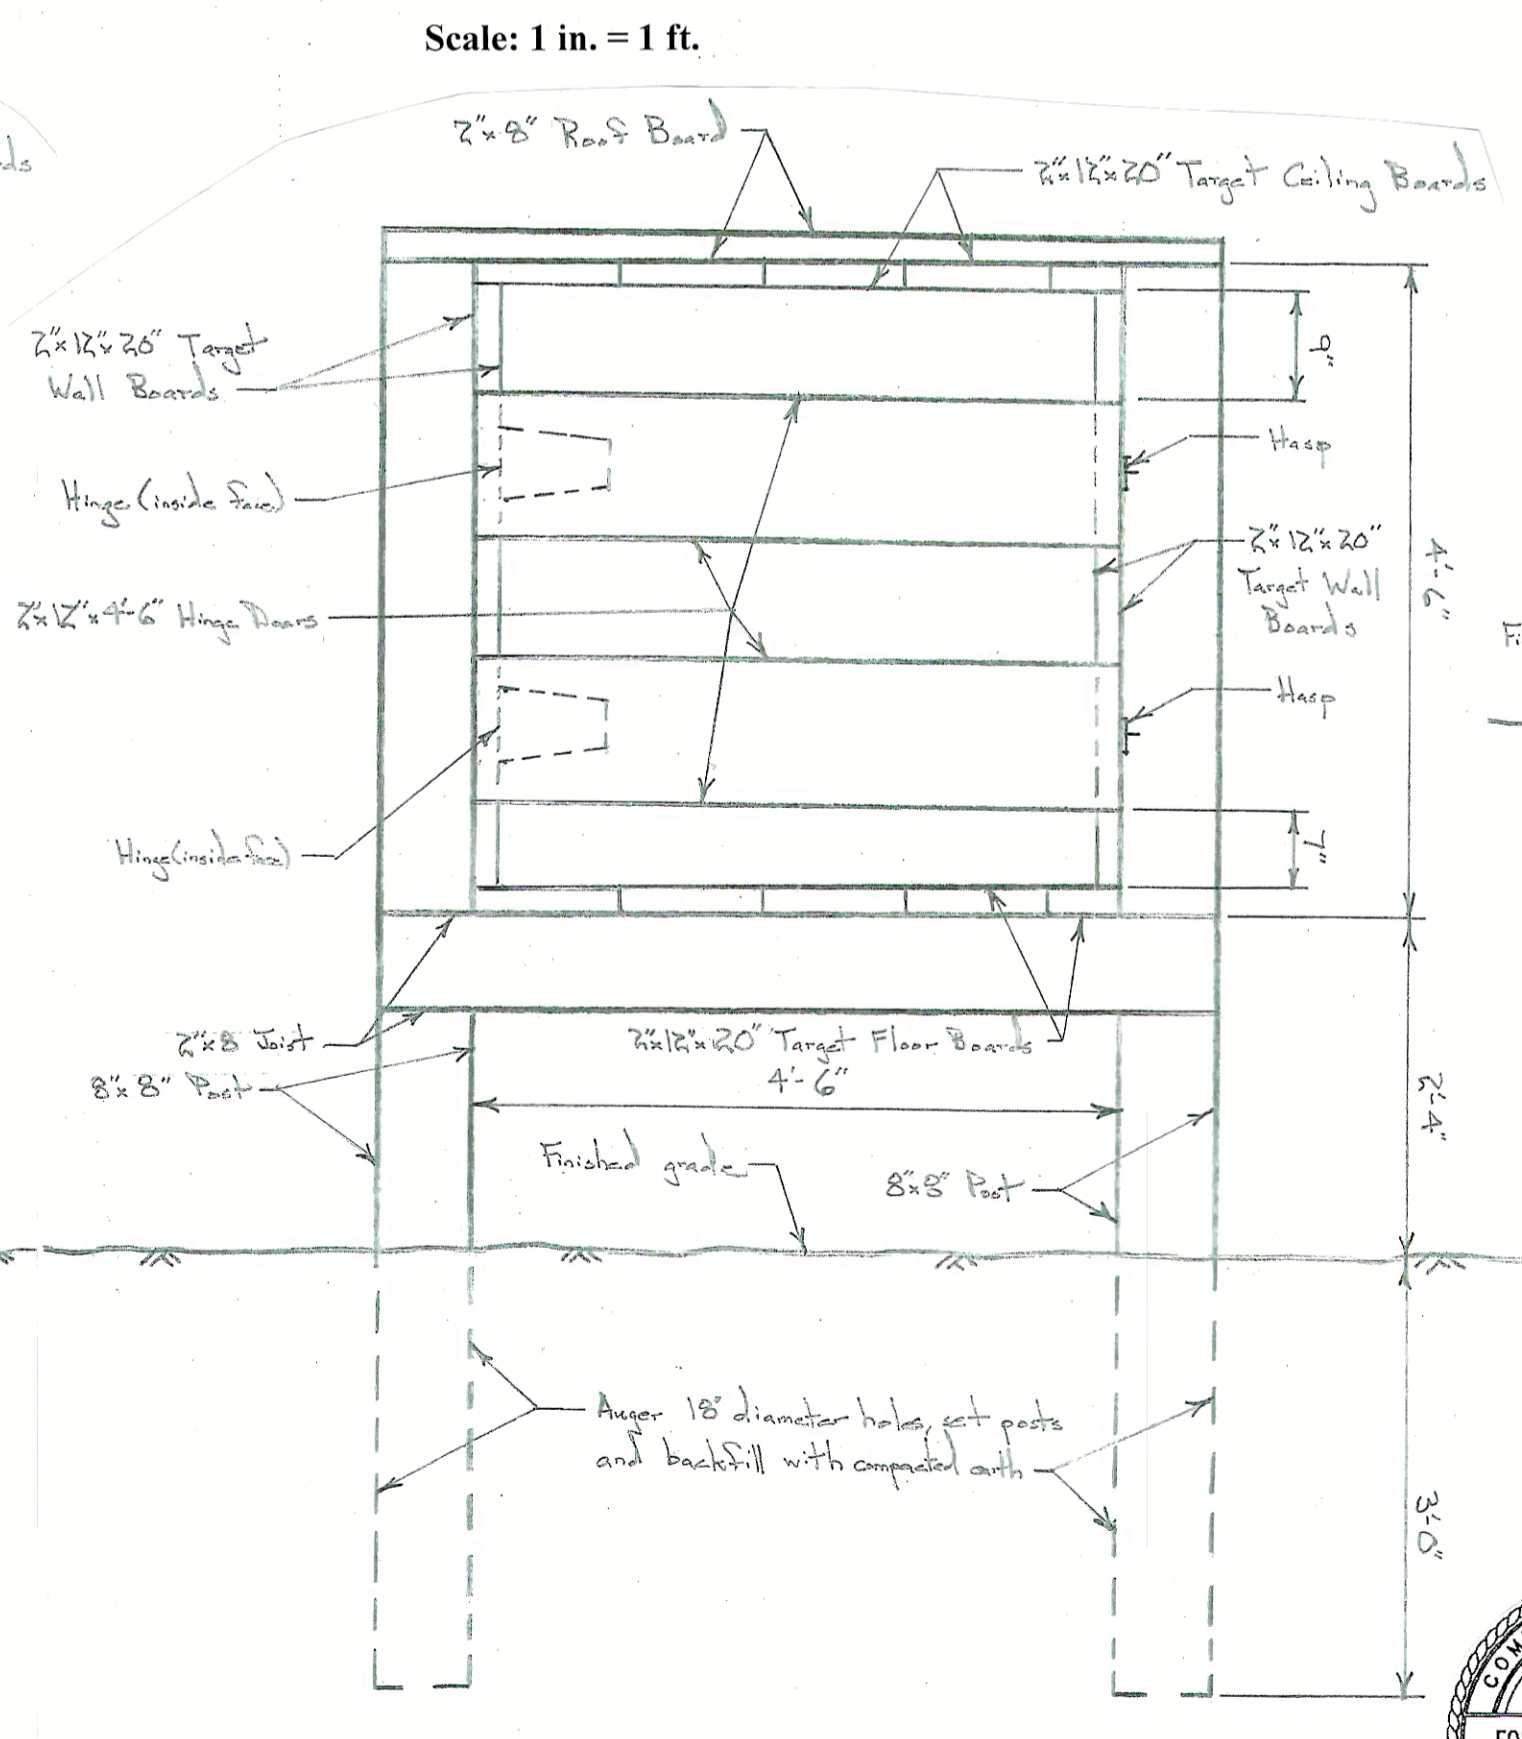 Scale: 1 in. = 1 ft.
2"x8" Roof Board
2"x12"x20" Target Ceiling Boards
ds
2"x12"x20" Target
Wall Boards
9"
Hasp
Hinge (inside face)
2"x12"x20"
Target Wall
Boards
4'-6"
2"x12"x4'-6" Hinge Doors
Fi
Hasp
Hinge (inside face)
7"
2"x8 Joist
2"x12"x20" Target Floor Boards
8"x8" Post
4'-6"
2'-4"
Finished grade
8"x8" Post
Auger 18" diameter holes, set posts
and backfill with compacted earth
3'-0"
COM